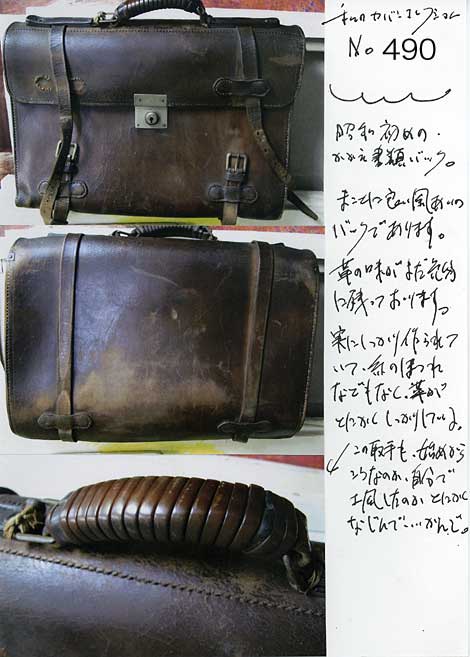 私のカバンコレクション
No 490
昭和初めの・
かかえ書類バック。
まことに良い風あいの
バックであります。
革の味がまだ充分
に残っております。
実にしっかり作られて
いて、糸のほつれ
などもなく、革が
とにかくしっかりしている。
この取手も、始めから
こうなのか、自分で
工風したのか とにかく
なじんで…いかんじ。